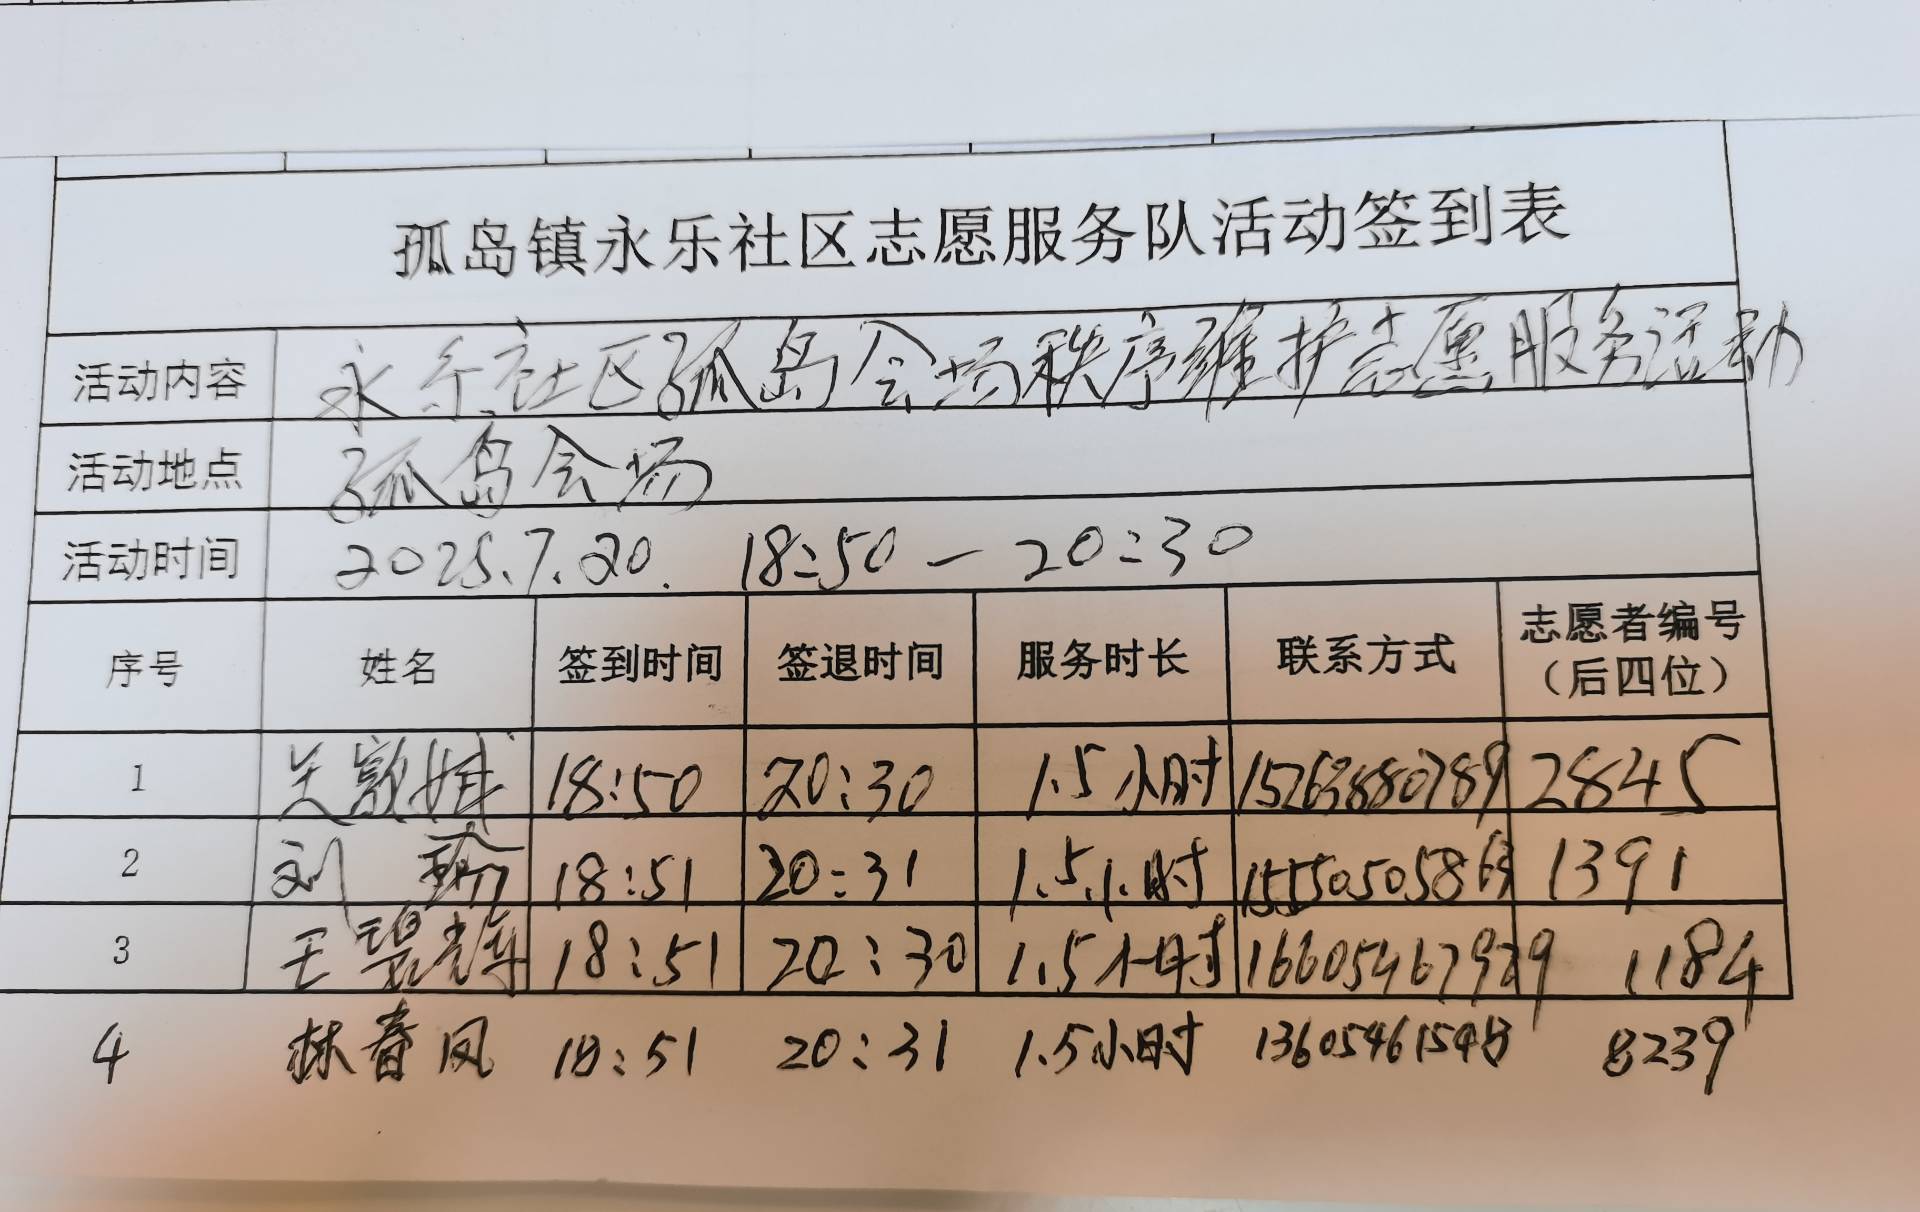 孤岛镇永乐社区志愿服务队活动签到表
活动内容 永乐社区孤岛会场秩序维护志愿服务活动
活动地点 孤岛会场
活动时间 2025.7.20. 18:50—20:30
序号 姓名 签到时间 签退时间 服务时长 联系方式 志愿者编号（后四位）
1 18:50 20:30 1.5小时 15263880789 2845
2 刘 18:51 20:31 1.5小时 1391
3 王 18:51 20:30 1.5小时 16605467929 1184
4 林春凤 18:51 20:31 1.5小时 8239